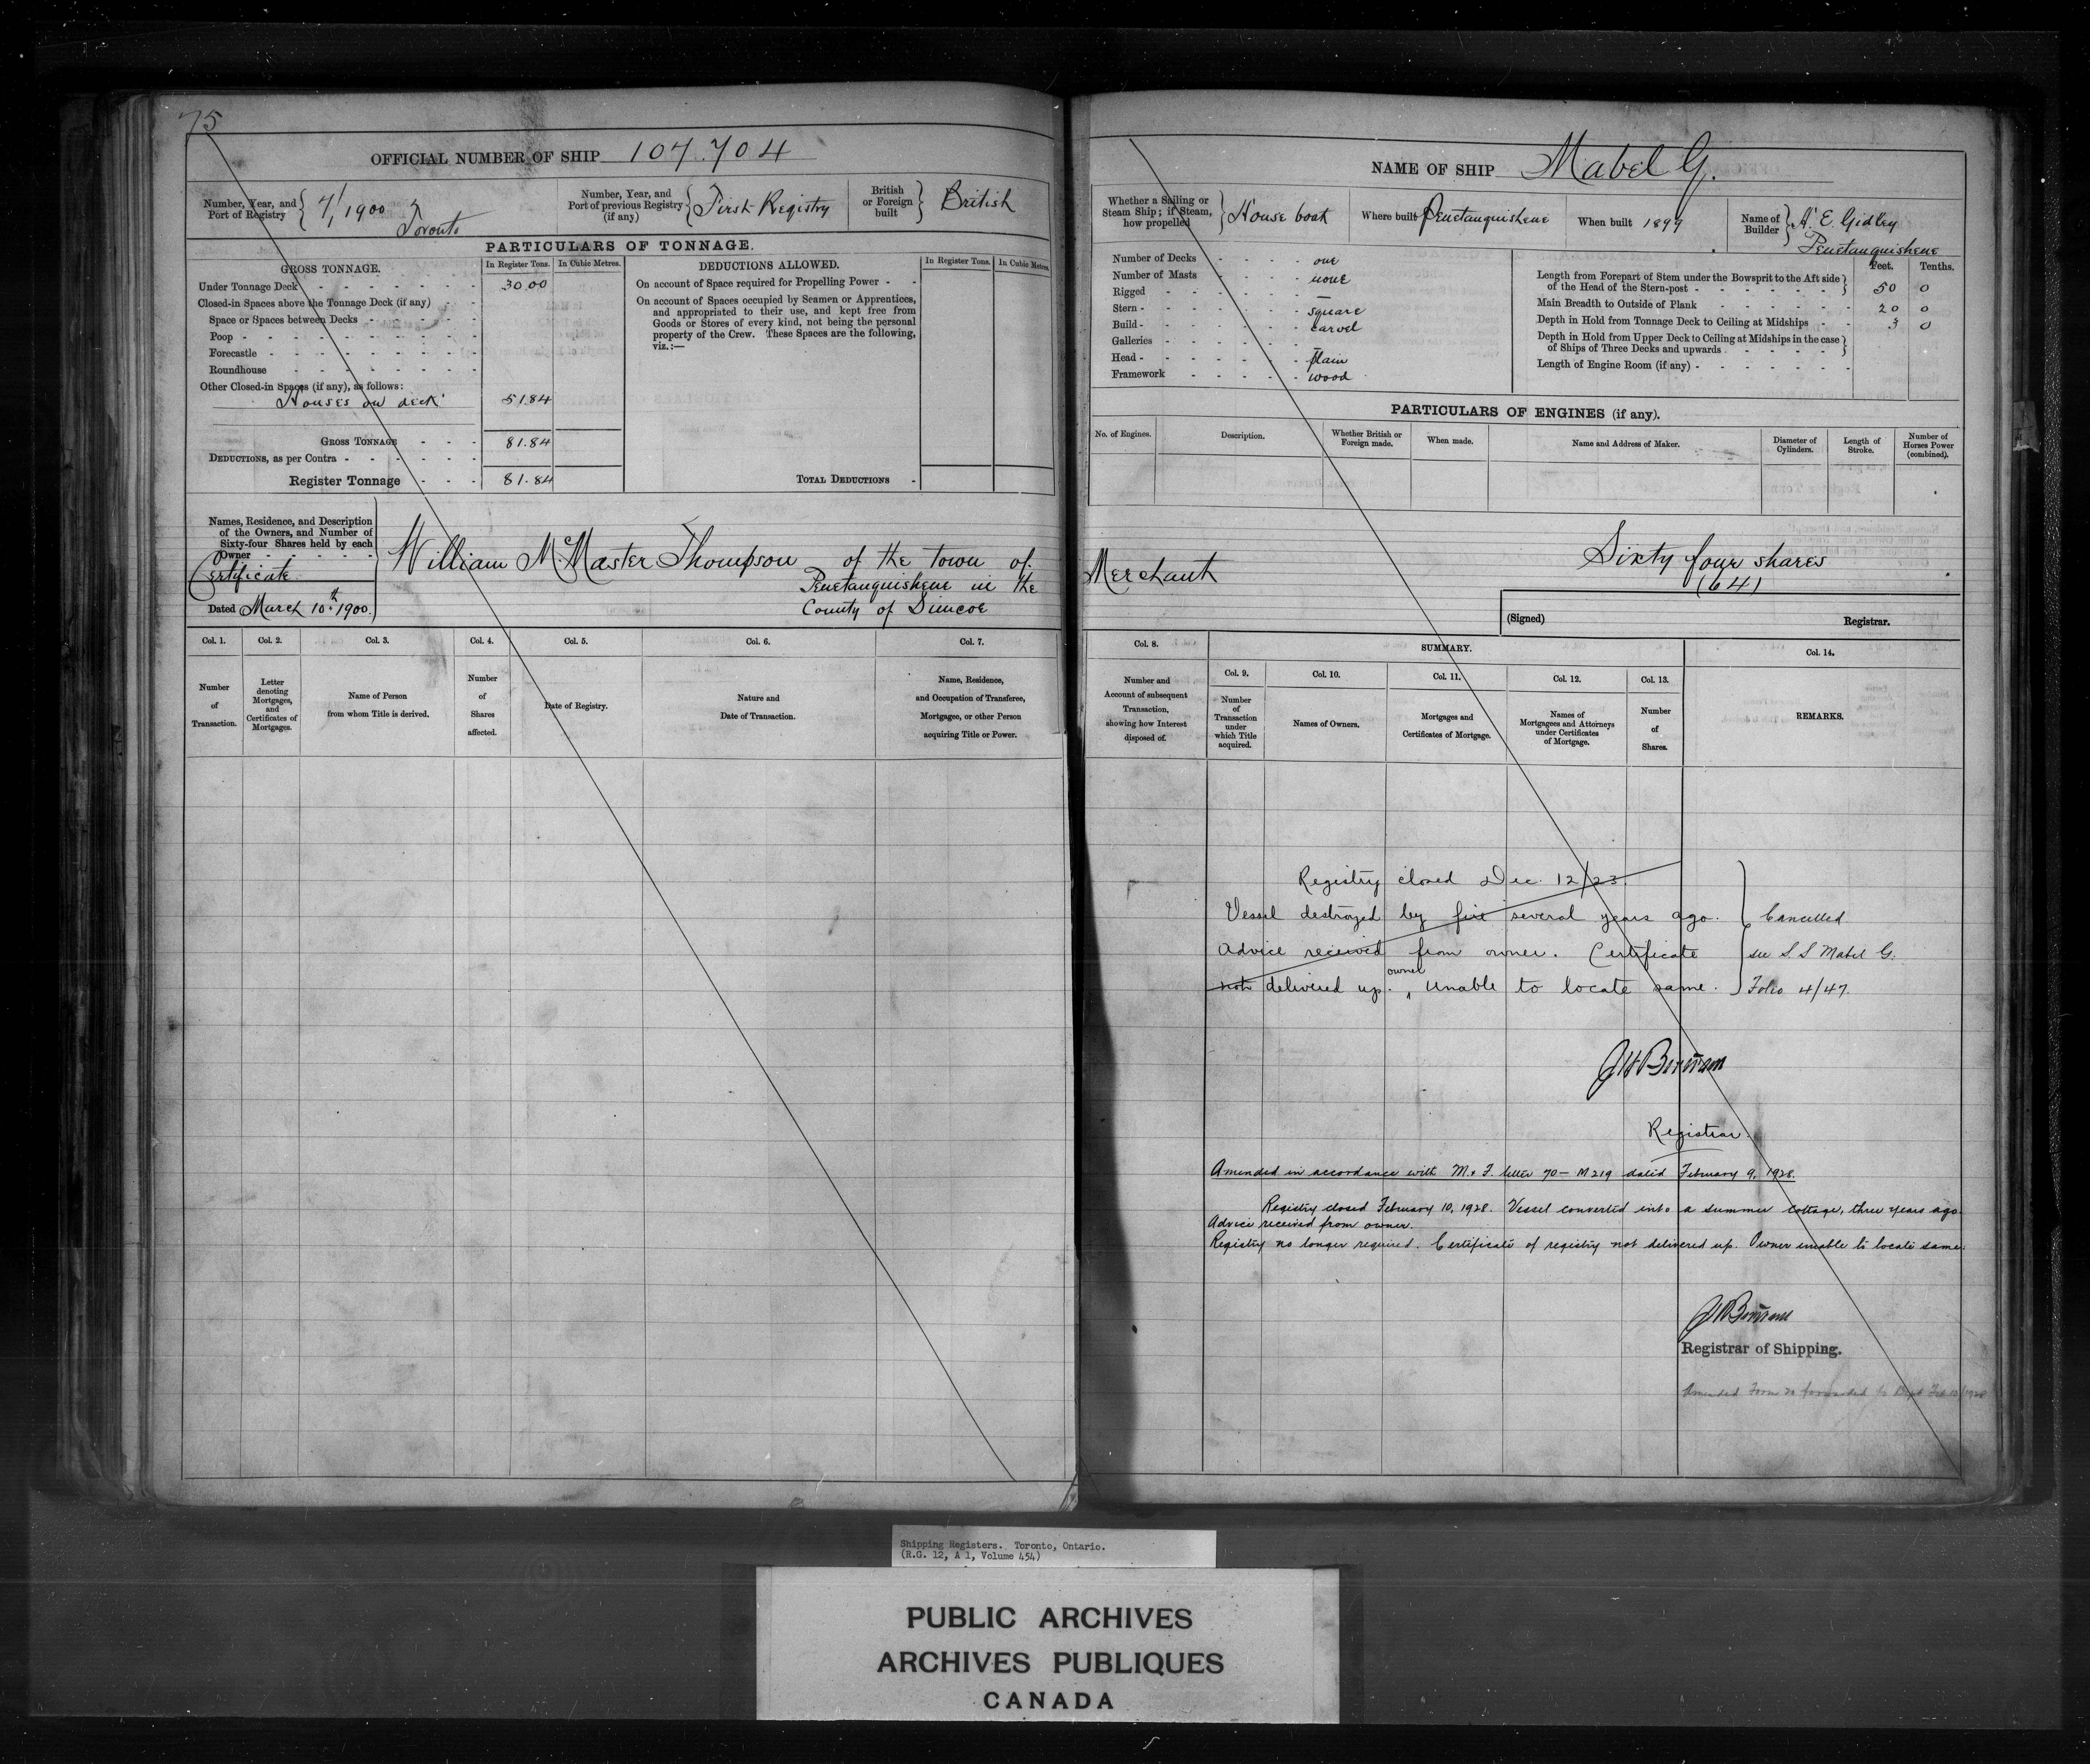 75
OFFICIAL NUMBER OF SHIP 107.704
Number, Year, and Port of Registry 7/1900 Toronto
Number, Year, and Port of previous Registry (if any) First Registry
British or Foreign built British
PARTICULARS OF TONNAGE.
GROSS TONNAGE. In Register Tons. In Cubic Metres.
Under Tonnage Deck 30.00
Closed-in Spaces above the Tonnage Deck (if any)
Space or Spaces between Decks
Poop
Forecastle
Roundhouse
Other Closed-in Spaces (if any), as follows:
Houses on deck 51.84
GROSS TONNAGE 81.84
DEDUCTIONS, as per Contra
Register Tonnage 81.84
DEDUCTIONS ALLOWED. In Register Tons. In Cubic Metres.
On account of Space required for Propelling Power
On account of Spaces occupied by Seamen or Apprentices,
and appropriated to their use, and kept free from
Goods or Stores of every kind, not being the personal
property of the Crew. These Spaces are the following,
viz.:—
TOTAL DEDUCTIONS
Names, Residence, and Description
of the Owners, and Number of
Sixty-four Shares held by each
Owner
Certificate
Dated March 10th 1900.
William McMaster Thompson of the town of
Penetanguishene in the
County of Simcoe
Col. 1. Col. 2. Col. 3. Col. 4. Col. 5. Col. 6. Col. 7.
Number of Transaction.
Letter denoting Mortgages, and Certificates of Mortgages.
Name of Person from whom Title is derived.
Number of Shares affected.
Date of Registry.
Nature and Date of Transaction.
Name, Residence, and Occupation of Transferee, Mortgagee, or other Person acquiring Title or Power.
NAME OF SHIP Mabel G.
Whether a Sailing or Steam Ship; if Steam, how propelled House boat
Where built Penetanguishene
When built 1899
Name of Builder A. E. Gidley
Penetanguishene
Number of Decks one
Number of Masts none
Rigged —
Stern square
Build carvel
Galleries —
Head plain
Framework wood
Feet. Tenths.
Length from Forepart of Stem under the Bowsprit to the Aft side
of the Head of the Stern-post 50 0
Main Breadth to Outside of Plank 20 0
Depth in Hold from Tonnage Deck to Ceiling at Midships 3 0
Depth in Hold from Upper Deck to Ceiling at Midships in the case
of Ships of Three Decks and upwards
Length of Engine Room (if any)
PARTICULARS OF ENGINES (if any).
No. of Engines.
Description.
Whether British or Foreign made.
When made.
Name and Address of Maker.
Diameter of Cylinders.
Length of Stroke.
Number of Horses Power (combined).
Merchant
Sixty four shares
(64)
(Signed) Registrar.
Col. 8. SUMMARY. Col. 14.
Col. 9. Col. 10. Col. 11. Col. 12. Col. 13.
Number and Account of subsequent Transaction, showing how Interest disposed of.
Number of Transaction under which Title acquired.
Names of Owners.
Mortgages and Certificates of Mortgage.
Names of Mortgagees and Attorneys under Certificates of Mortgage.
Number of Shares.
REMARKS.
Registry closed Dec. 12/23.
Vessel destroyed by fire several years ago. Cancelled
Advice received from owner. Certificate see S.S Mabel G.
not delivered up. owner Unable to locate same. Folio 4/47.
Registrar.
Amended in accordance with M. & F. letter 70-M219 dated February 9, 1928.
Registry closed February 10, 1928. Vessel converted into a summer cottage, three years ago.
Advice received from owner.
Registry no longer required. Certificate of registry not delivered up. Owner unable to locate same.
Registrar of Shipping.
Amended Form 20 forwarded to Dept Feb 10/1928
Shipping Registers. Toronto, Ontario.
(R.G. 12, A 1, Volume 454)
PUBLIC ARCHIVES
ARCHIVES PUBLIQUES
CANADA